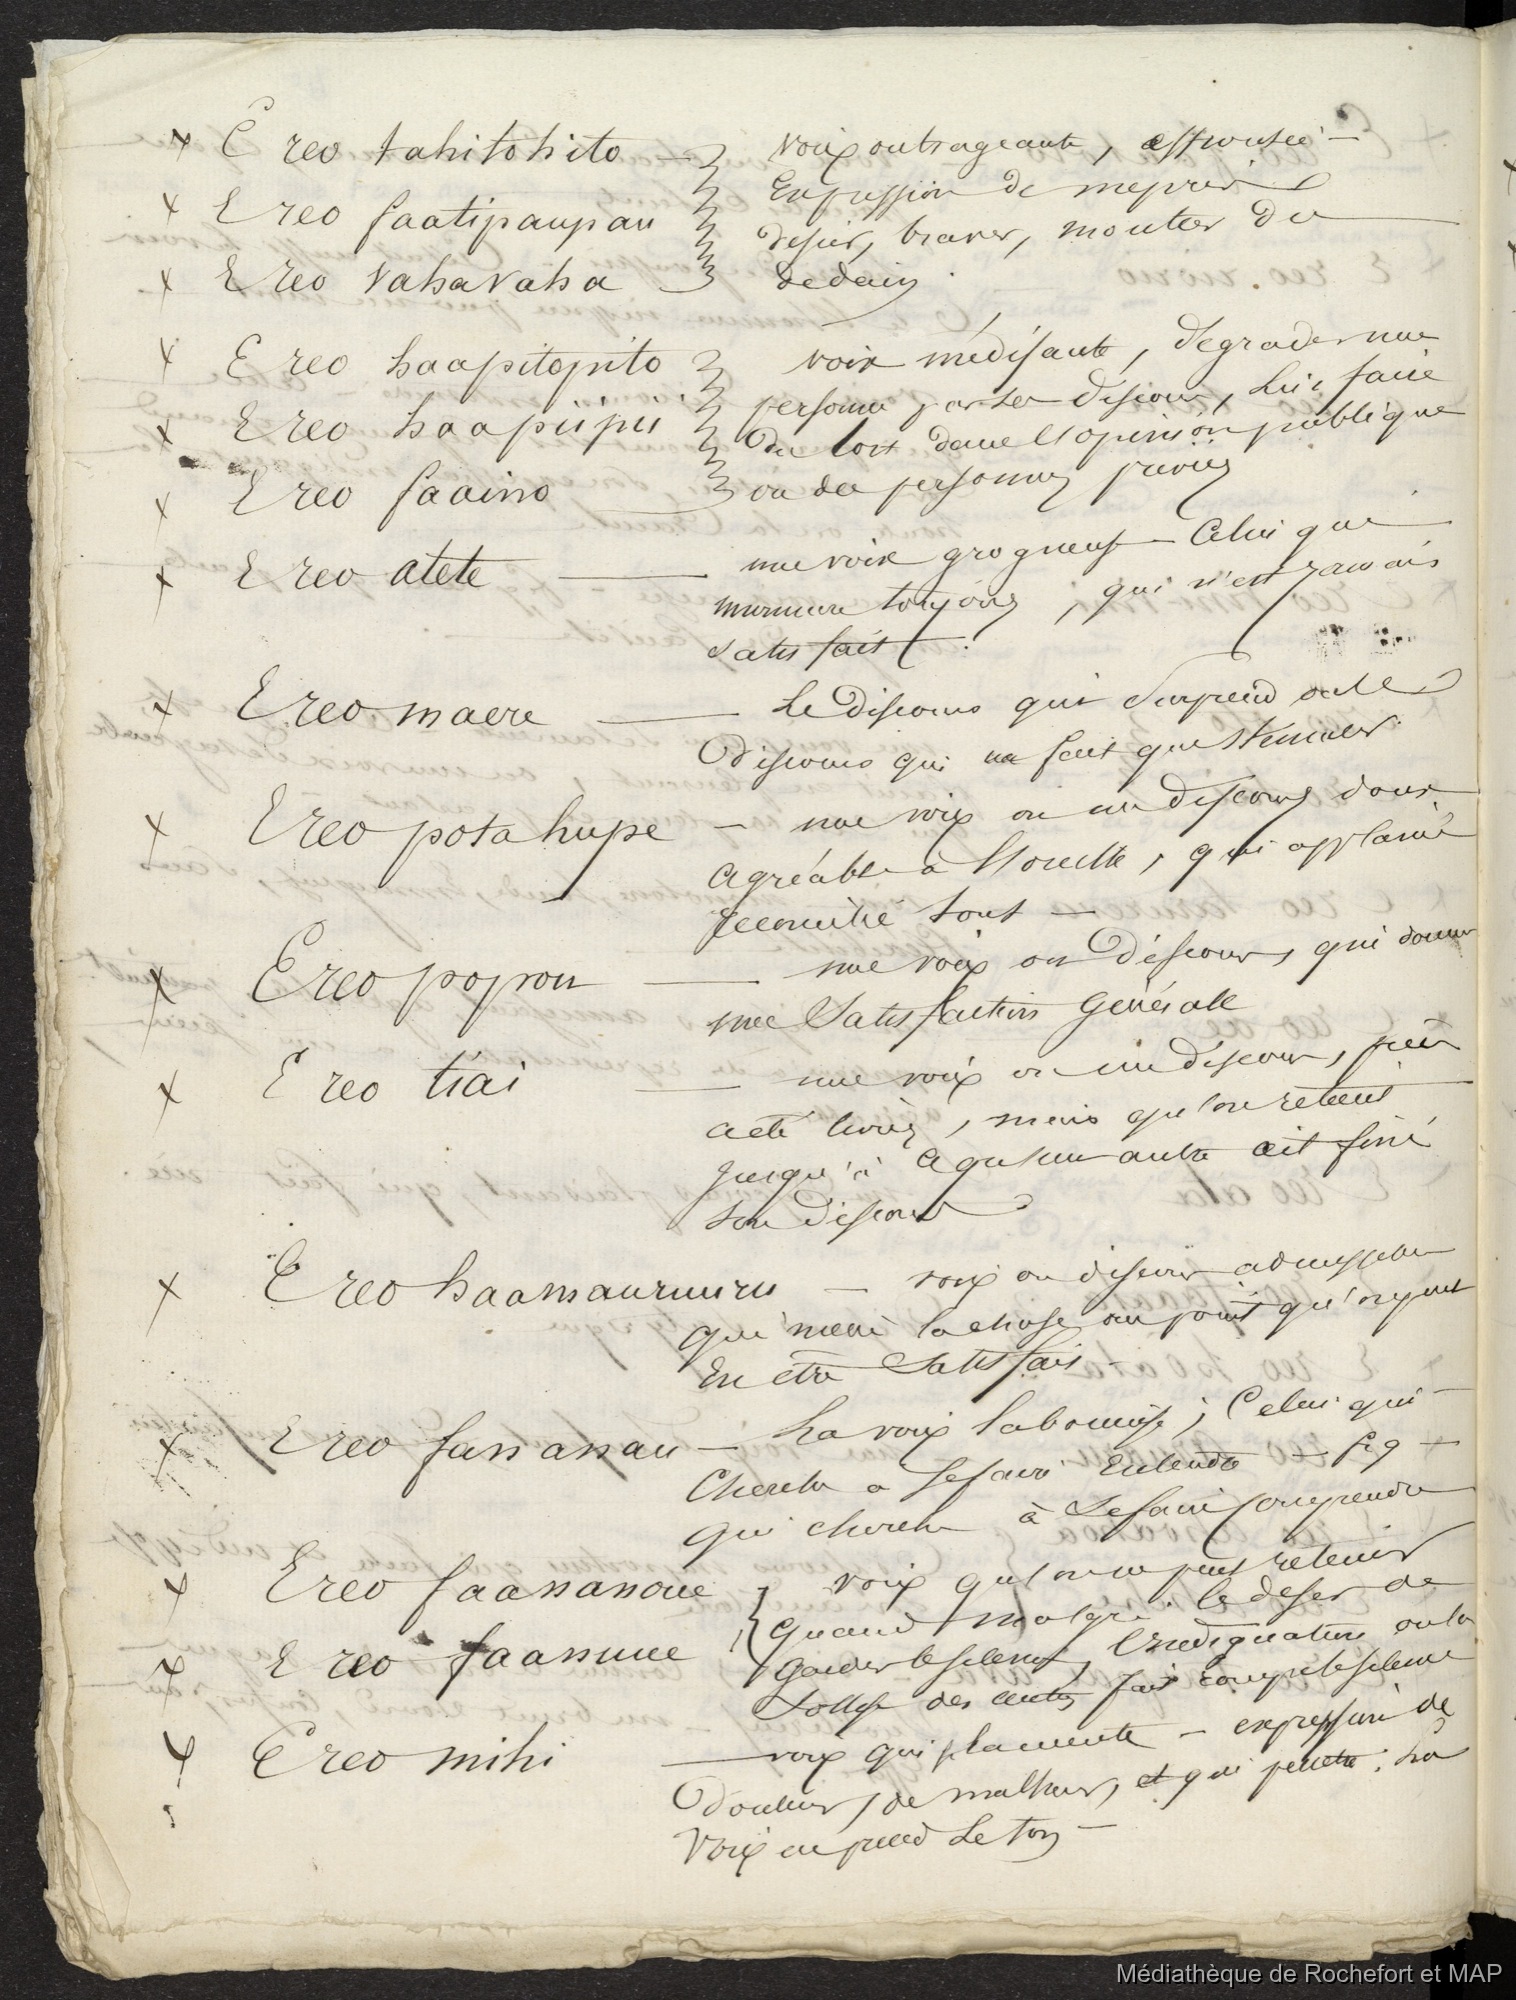 E reo tahitohito — voix outrageante, effrontée —
E reo faatipaupau Expression de mepris
defier, braver, montrer du
E reo vahavaha dedain.
E reo haapitopito voix médisante, dégrader une
personne par ses discours, lui faire
E reo haapiipii du tort dans l'opinion publique
E reo faaino ou des personnes privées
E reo atete — une voix grogneuse — Celui qui
murmure toujours, qui n'est jamais
satisfait.
E reo maere — Le Discours qui Surprend ou le
Discours qui ne fait que
E reo potahupe — une voix ou un discours doux
agréable à l'oreille, qui applanie
reconcilie tout —
E reo popou — une voix ou Discours qui donne
une Satisfaction Générale
E reo tiai — une voix ou un discours,
acte, mais que l'on retient
Jusqu'à ce qu'un autre ait fini
son discours
E reo haamaururu — voix ou discours
qui mene la chose au point qu'on peut
En etre Satisfait —
E reo fananau — La voix laborieuse; Celui qui
Cherche a se faire Entendre — fig —
qui cherche à se faire comprendre
E reo faananoue voix qu'on ne peut retenir
quand malgré le desir de
E reo faanuue garder le silence, l'indignation ou la
sottise des autres fait rompre le silence
E reo mihi — voix qui plamente — expression de
Douleur, de malheur, et qui : La
Voix en prend Le ton —
Médiathèque de Rochefort et MAP